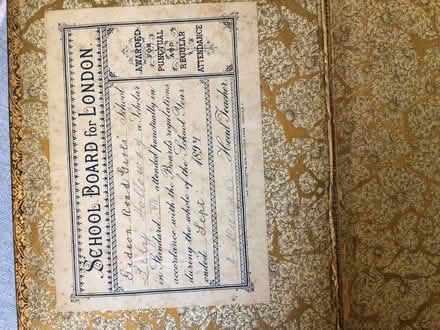 SCHOOL BOARD for LONDON
AWARDED
FOR
PUNCTUAL
AND
REGULAR
ATTENDANCE
Gideon Road Girls' School
a Scholar
in Standard attended punctually in
accordance with the Board's regulations
during the whole of the School Year
ended Sept. 1894
Head Teacher.